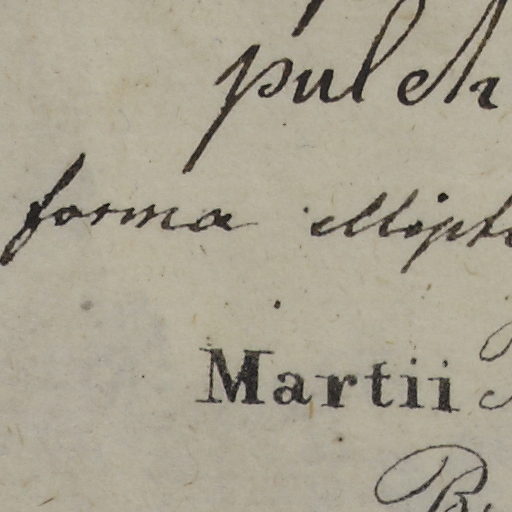 pulch
forma ellipt
Martii